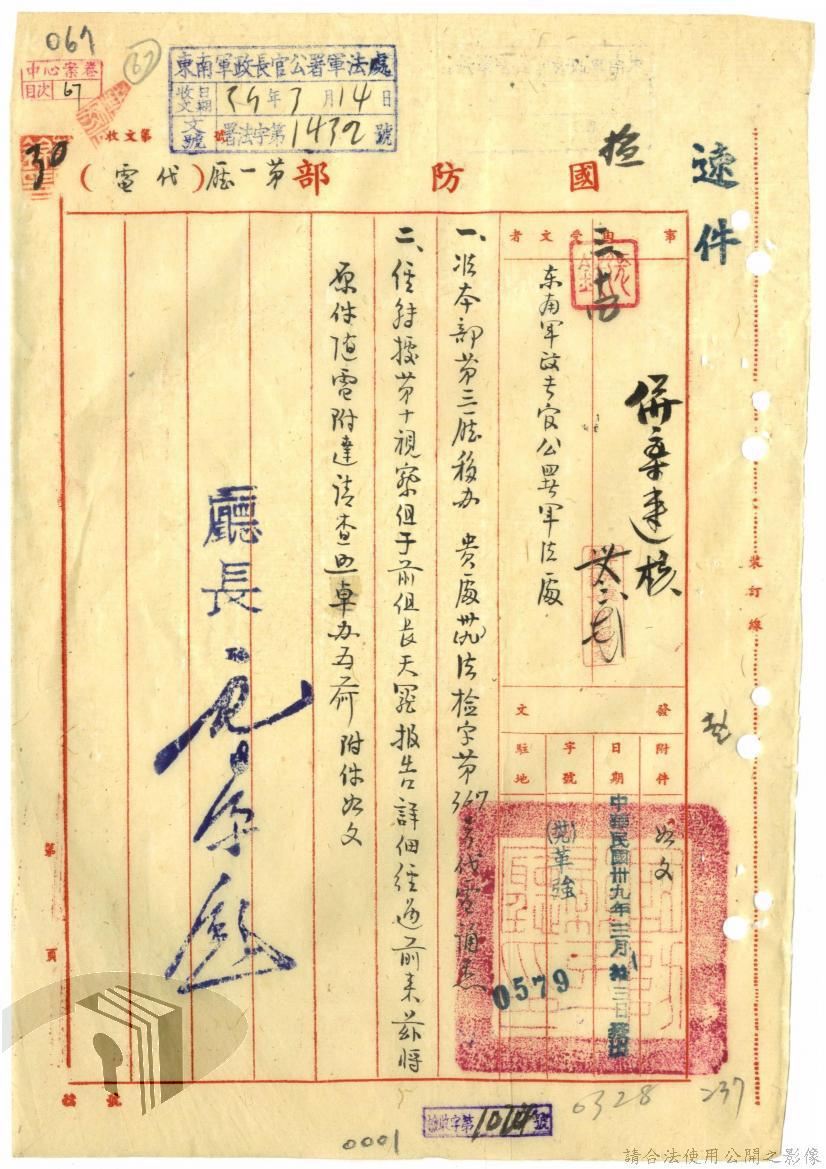 067
67
中心案卷
目次 67
東南軍政長官公署軍法處
收文日期 39年3月14日
文號 署法字第1432號
收文第 號
速件
國防部第一廳(代電)
事由
受文者
東南軍政長官公署軍法處
併案建核
發文
附件 如文
日期 中華民國卅九年三月拾三日發出
字號 革強
0579
駐地
一、准本部第三廳移办 貴處 法檢字第367号代電誦悉
二、經轉據第十視察組于前組長天 報告詳細經過前來茲將
原件隨電附達請查照卓办為荷 附件如文
廳長
裝訂線
第 頁
檢收字第 號
0328
237
0001
請合法使用公開之影像